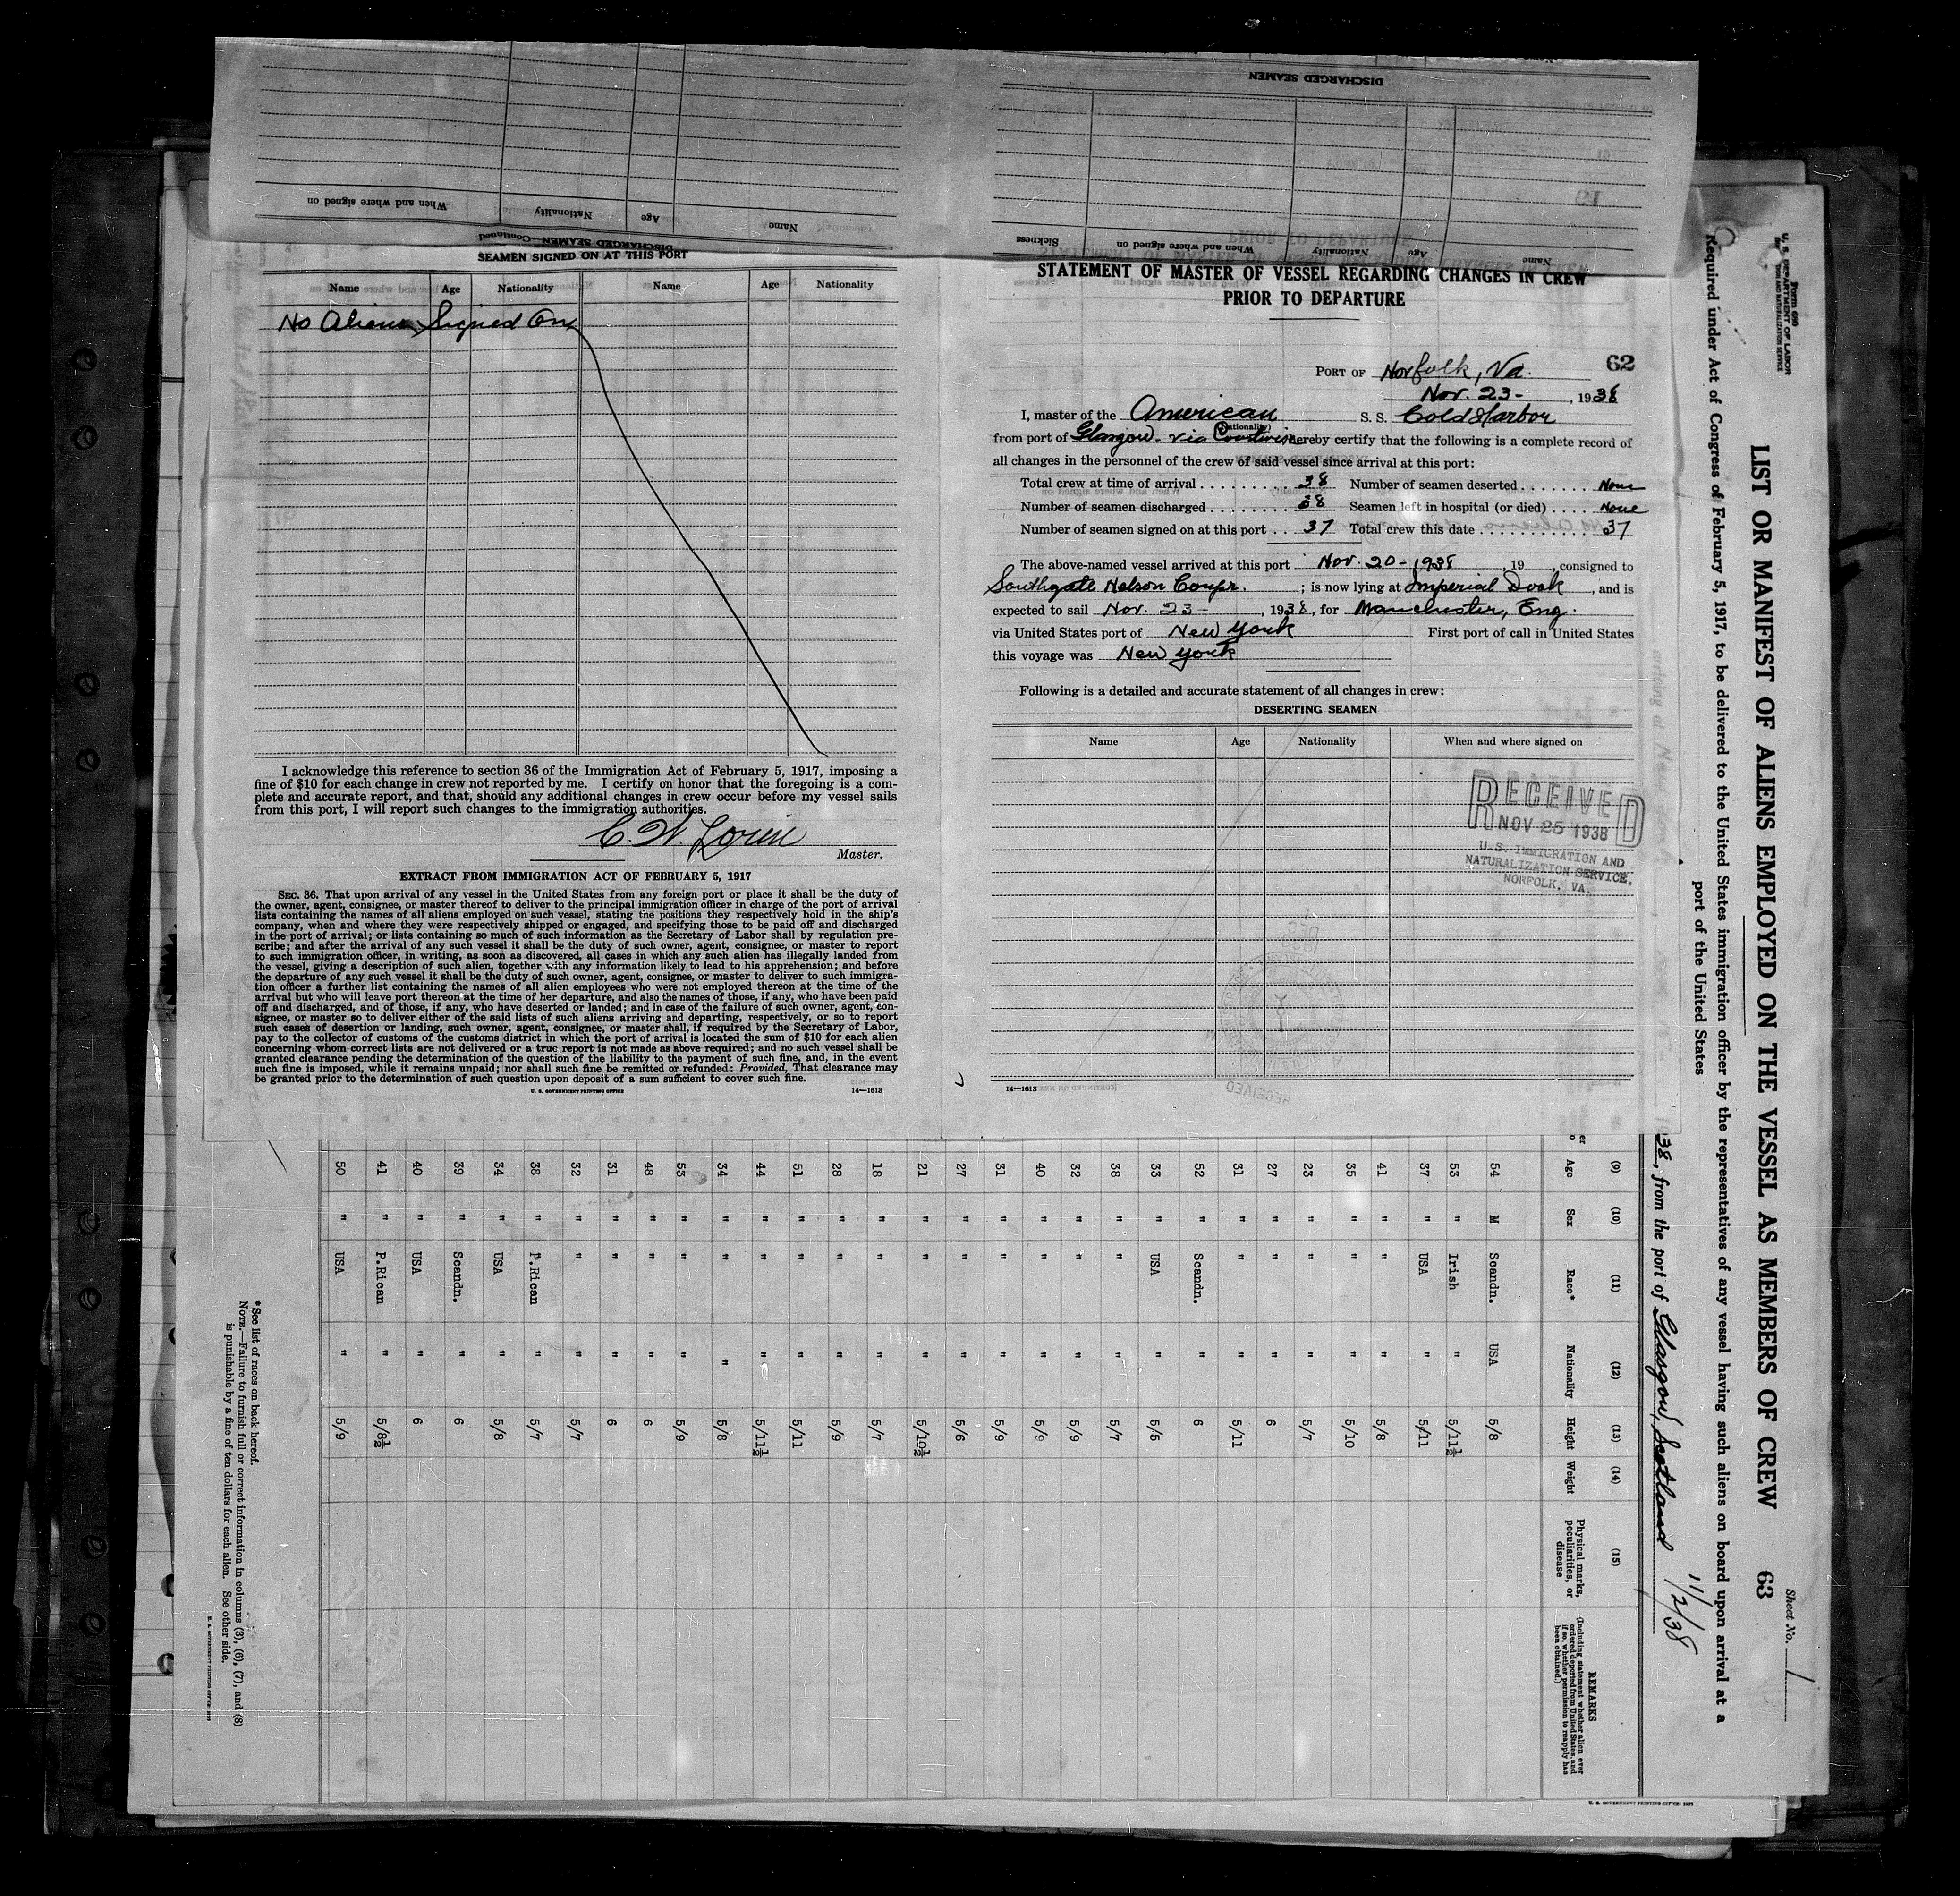 DISCHARGED SEAMEN
Name
Age
Nationality
When and where signed on
Sickness
Name
Age
Nationality
When and where signed on
DISCHARGED SEAMEN—Continued
SEAMEN SIGNED ON AT THIS PORT
Name Age Nationality Name Age Nationality
No Aliens Signed On
I acknowledge this reference to section 36 of the Immigration Act of February 5, 1917, imposing a
fine of $10 for each change in crew not reported by me. I certify on honor that the foregoing is a com-
plete and accurate report, and that, should any additional changes in crew occur before my vessel sails
from this port, I will report such changes to the immigration authorities.
C. W.
Master.
EXTRACT FROM IMMIGRATION ACT OF FEBRUARY 5, 1917
SEC. 36. That upon arrival of any vessel in the United States from any foreign port or place it shall be the duty of
the owner, agent, consignee, or master thereof to deliver to the principal immigration officer in charge of the port of arrival
lists containing the names of all aliens employed on such vessel, stating the positions they respectively hold in the ship's
company, when and where they were respectively shipped or engaged, and specifying those to be paid off and discharged
in the port of arrival; or lists containing so much of such information as the Secretary of Labor shall by regulation pre-
scribe; and after the arrival of any such vessel it shall be the duty of such owner, agent, consignee, or master to report
to such immigration officer, in writing, as soon as discovered, all cases in which any such alien has illegally landed from
the vessel, giving a description of such alien, together with any information likely to lead to his apprehension; and before
the departure of any such vessel it shall be the duty of such owner, agent, consignee, or master to deliver to such immigra-
tion officer a further list containing the names of all alien employees who were not employed thereon at the time of the
arrival but who will leave port thereon at the time of her departure, and also the names of those, if any, who have been paid
off and discharged, and of those, if any, who have deserted or landed; and in case of the failure of such owner, agent, con-
signee, or master so to deliver either of the said lists of such aliens arriving and departing, respectively, or so to report
such cases of desertion or landing, such owner, agent, consignee, or master shall, if required by the Secretary of Labor,
pay to the collector of customs of the customs district in which the port of arrival is located the sum of $10 for each alien
concerning whom correct lists are not delivered or a true report is not made as above required; and no such vessel shall be
granted clearance pending the determination of the question of the liability to the payment of such fine, and, in the event
such fine is imposed, while it remains unpaid; nor shall such fine be remitted or refunded: Provided, That clearance may
be granted prior to the determination of such question upon deposit of a sum sufficient to cover such fine.
U. S. GOVERNMENT PRINTING OFFICE 14—1613
STATEMENT OF MASTER OF VESSEL REGARDING CHANGES IN CREW
PRIOR TO DEPARTURE
62
PORT OF Norfolk, Va.
Nov. 23-, 1938
I, master of the American S. S. Cold Harbor
(Nationality)
from port of Glasgow - via Coastwise hereby certify that the following is a complete record of
all changes in the personnel of the crew of said vessel since arrival at this port:
Total crew at time of arrival 38 Number of seamen deserted None
Number of seamen discharged 38 Seamen left in hospital (or died) None
Number of seamen signed on at this port 37 Total crew this date 37
The above-named vessel arrived at this port Nov. 20-1938, 19 , consigned to
Southgate Nelson Corpr.; is now lying at Imperial Dock, and is
expected to sail Nov. 23-, 1938, for Manchester, Eng.
via United States port of New York First port of call in United States
this voyage was New York
Following is a detailed and accurate statement of all changes in crew:
DESERTING SEAMEN
Name Age Nationality When and where signed on
RECEIVED
NOV 25 1938
U.S. IMMIGRATION AND
NATURALIZATION SERVICE.
NORFOLK, VA.
14—1613
Form 680
U. S. DEPARTMENT OF LABOR
IMMIGRATION AND NATURALIZATION SERVICE
Sheet No. 1
LIST OR MANIFEST OF ALIENS EMPLOYED ON THE VESSEL AS MEMBERS OF CREW 63
Required under Act of Congress of February 5, 1917, to be delivered to the United States immigration officer by the representatives of any vessel having such aliens on board upon arrival at a
port of the United States
38, from the port of Glasgow, Scotland 11/2/38
(9) (10) (11) (12) (13) (14) (15)
Age Sex Race* Nationality Height Weight Physical marks, peculiarities, or disease
REMARKS
(Including statement whether alien ever ordered deported from United States, and if so, whether permission to reapply has been obtained.)
54 M Scandn. USA 5/8
53 " Irish " 5/11½
37 " USA " 5/11
41 " " 5/8
35 " " 5/10
23 " " " 5/7
27 " " " 6
31 " " " 5/11
52 " Scandn. " 6
33 " USA " 5/5
38 " " " 5/7
32 " " " 5/9
40 " " " 5/9
31 " " " 5/9
27 " " " 5/6
21 " " " 5/10½
18 " " " 5/7
28 " " " 5/9
51 " " " 5/11
44 " " " 5/11½
34 " " " 5/8
53 " " " 5/9
48 " " " 6
31 " " " 6
32 " " " 5/7
38 " P.Rican " 5/7
34 " USA " 5/8
39 " Scandn. " 6
40 " USA " 6
41 " P.Rican " 5/8½
50 " USA " 5/9
*See list of races on back hereof.
NOTE.—Failure to furnish full or correct information in columns (3), (6), (7), and (8)
is punishable by a fine of ten dollars for each alien. See other side.